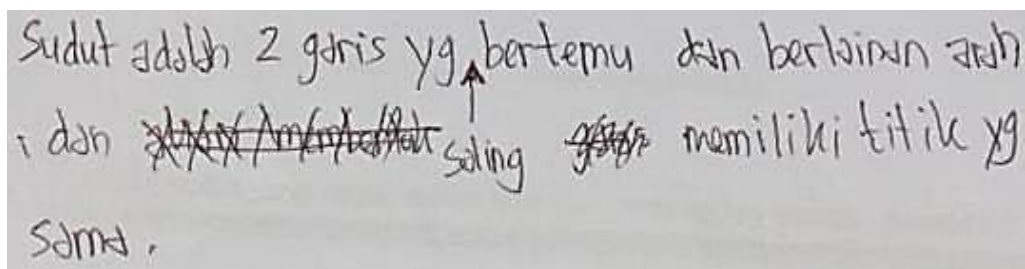 Sudut adalah 2 garis yg bertemu dan berlainan arah
; dan saling memiliki titik yg
sama.